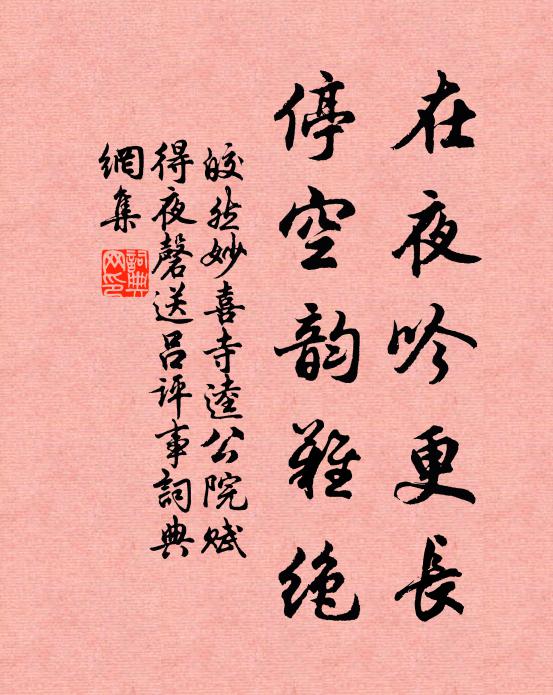 在夜吟更長
停空韵難絶
皎然妙喜寺逵公院賦
得夜磬送呂评事詞典
網集
詞典网印